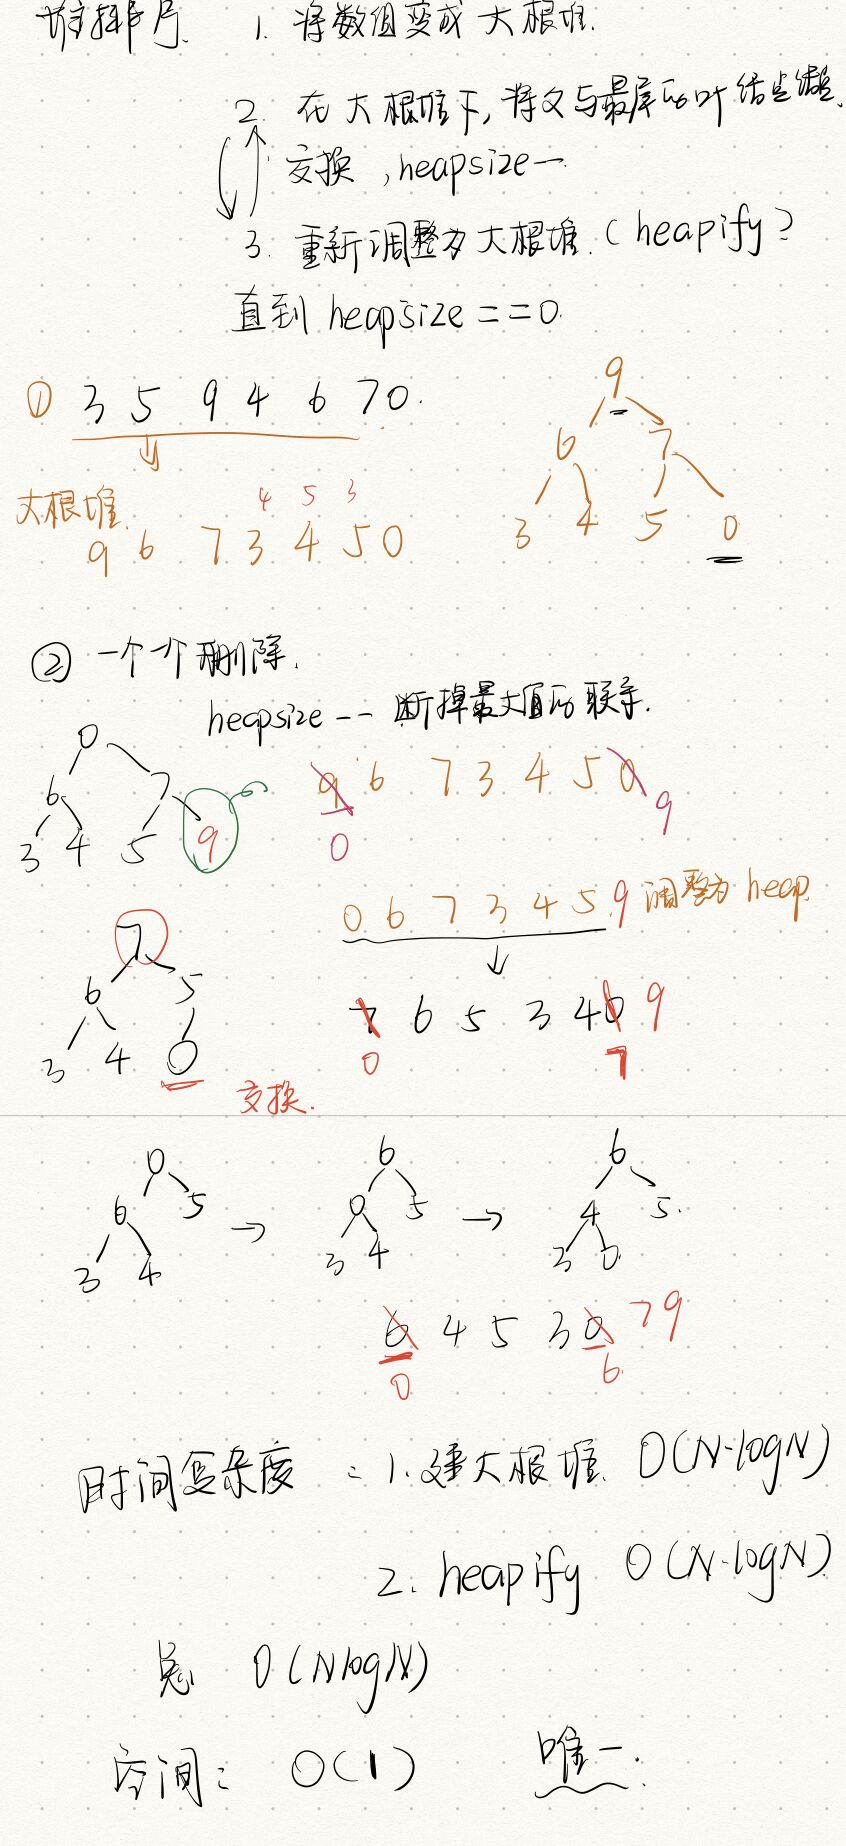 堆排序. 1. 将数组变成 大根堆.
2. 在大根堆下, 将父与最底的叶结点做
交换, heapsize--
3. 重新调整为大根堆. (heapify)
直到 heapsize == 0.
① 3 5 9 4 6 7 0.
大根堆.
4 5 3
9 6 7 3 4 5 0
9
6 7
3 4 5 0
② 一个个删除.
heapsize -- 断掉最大值的联系.
0
6 7
3 4 5 9
9 6 7 3 4 5 0
0 9
0 6 7 3 4 5 9 调整为 heap.
7
6 5
3 4 0
7 6 5 3 4 0 9
0 7
交换.
0
6 5
3 4
→
6
0 5
3 4
→
6
4 5.
3 0
6 4 5 3 0 7 9
0 6.
时间复杂度 : 1. 建大根堆. O(N·logN)
2. heapify O(N·logN)
总 O(NlogN)
空间: O(1) 唯一.